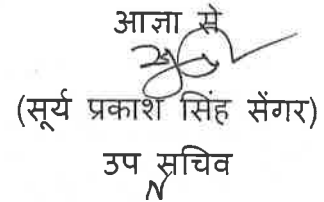 आज्ञा से
(सूर्य प्रकाश सिंह सेंगर)
उप सचिव